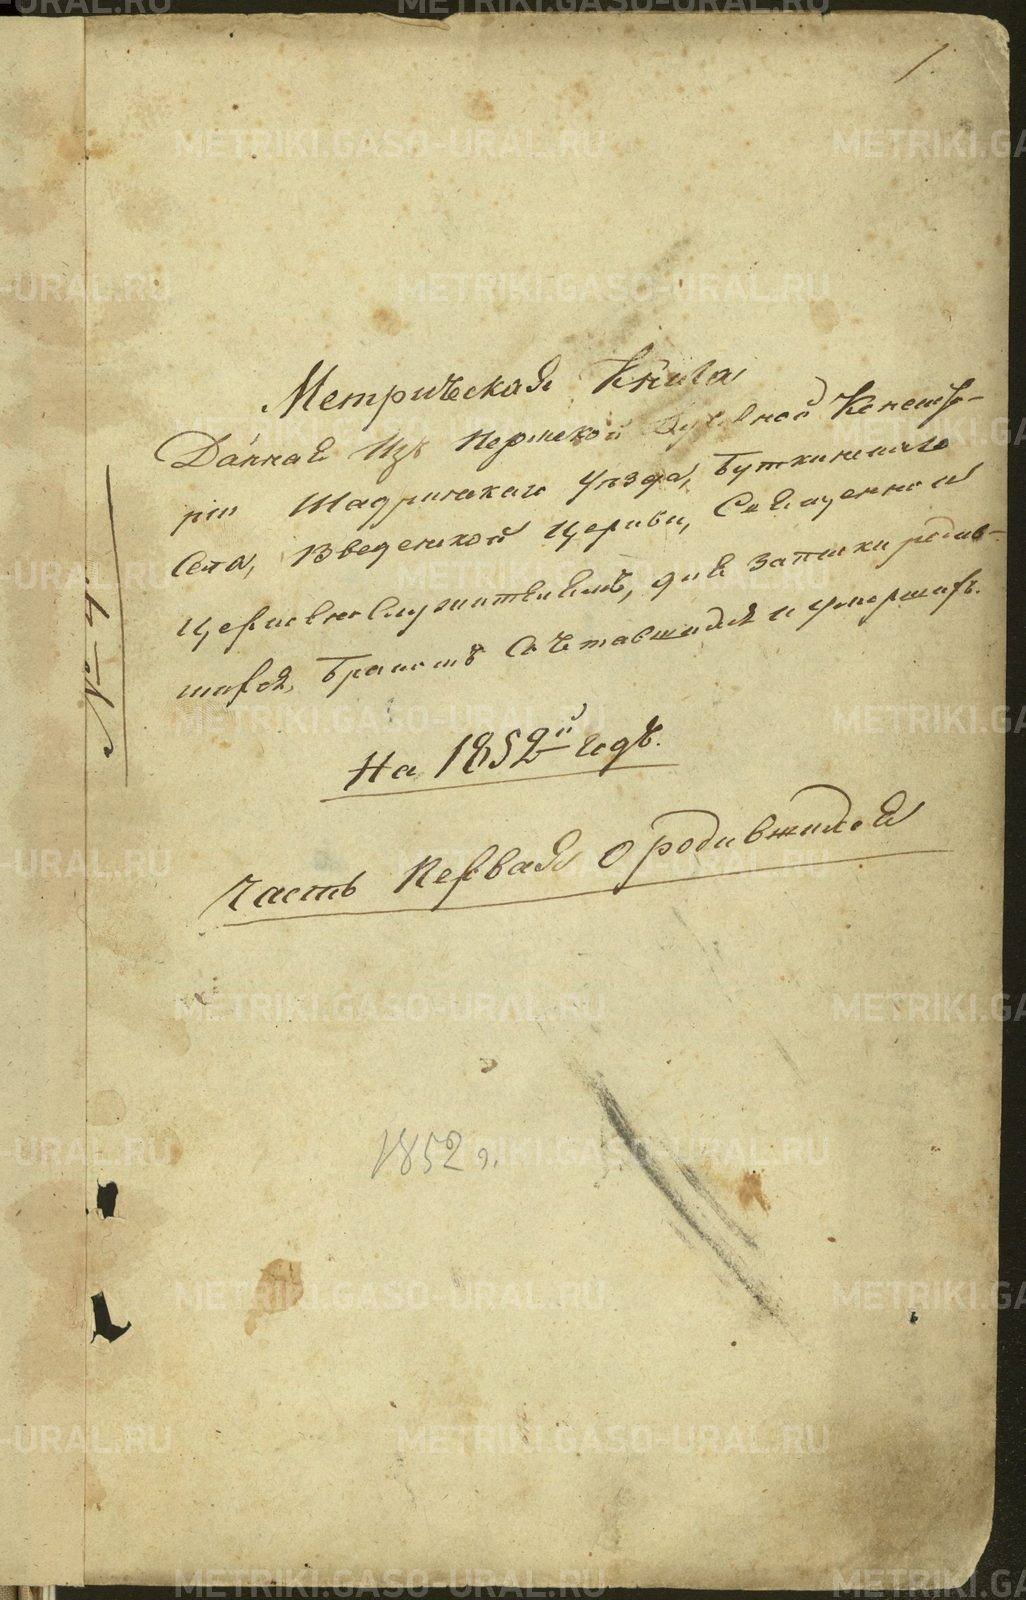 1.
Метрическая Книга
Данная Изъ Пермской Духовной Консисто-
ріи Шадринскаго Уѣзда, Буткинскаго
Села, Введенской Церкви, Священно и
Церковнослужителямъ, для записки родив-
шихся, Бракомъ Сочетавшихся и умершихъ.
На 1852й годъ.
Часть Первая о родившихся
№ 4.
1852 г.